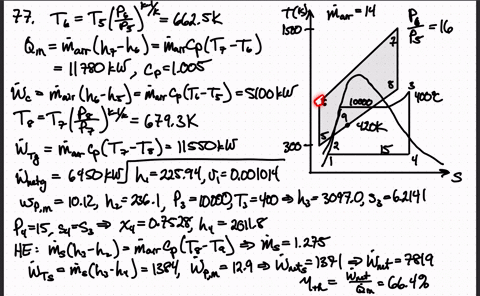 77. T₆ = T₅(P₆/P₅)^(k-1)/k = 662.5K
Q̇in = ṁair(h₇-h₆) = ṁair Cp(T₇-T₆)
= 11780 kW, Cp = 1.005
Ẇc = ṁair(h₆-h₅) = ṁair Cp(T₆-T₅) = 5100 kW
T₈ = T₇(P₈/P₇)^(k-1)/k = 679.3K
ẆTg = ṁair Cp(T₇-T₈) = 11550 kW
Ẇnetg = 6450 kW h₁ = 225.94, v₁ = 0.001014
wP,in = 10.12, h₂ = 236.1, P₃ = 10000, T₃ = 400 ⇒ h₃ = 3097.0, s₃ = 6.2141
P₄ = 15, s₄ = s₃ ⇒ x₄ = 0.7528, h₄ = 2011.8
HE: ṁs(h₃-h₂) = ṁair Cp(T₈-T₉) ⇒ ṁs = 1.275
ẆTs = ṁs(h₃-h₄) = 1384, ẆP,in = 12.9 ⇒ Ẇnet,s = 1371 ⇒ Ẇnet = 7819
ηth = Ẇnet/Q̇in = 66.4%
T(K) ṁair = 14
1500
P₆/P₅ = 16
7
8
3
400°C
6
10000
9
420K
300
5
2
15
1
4
S